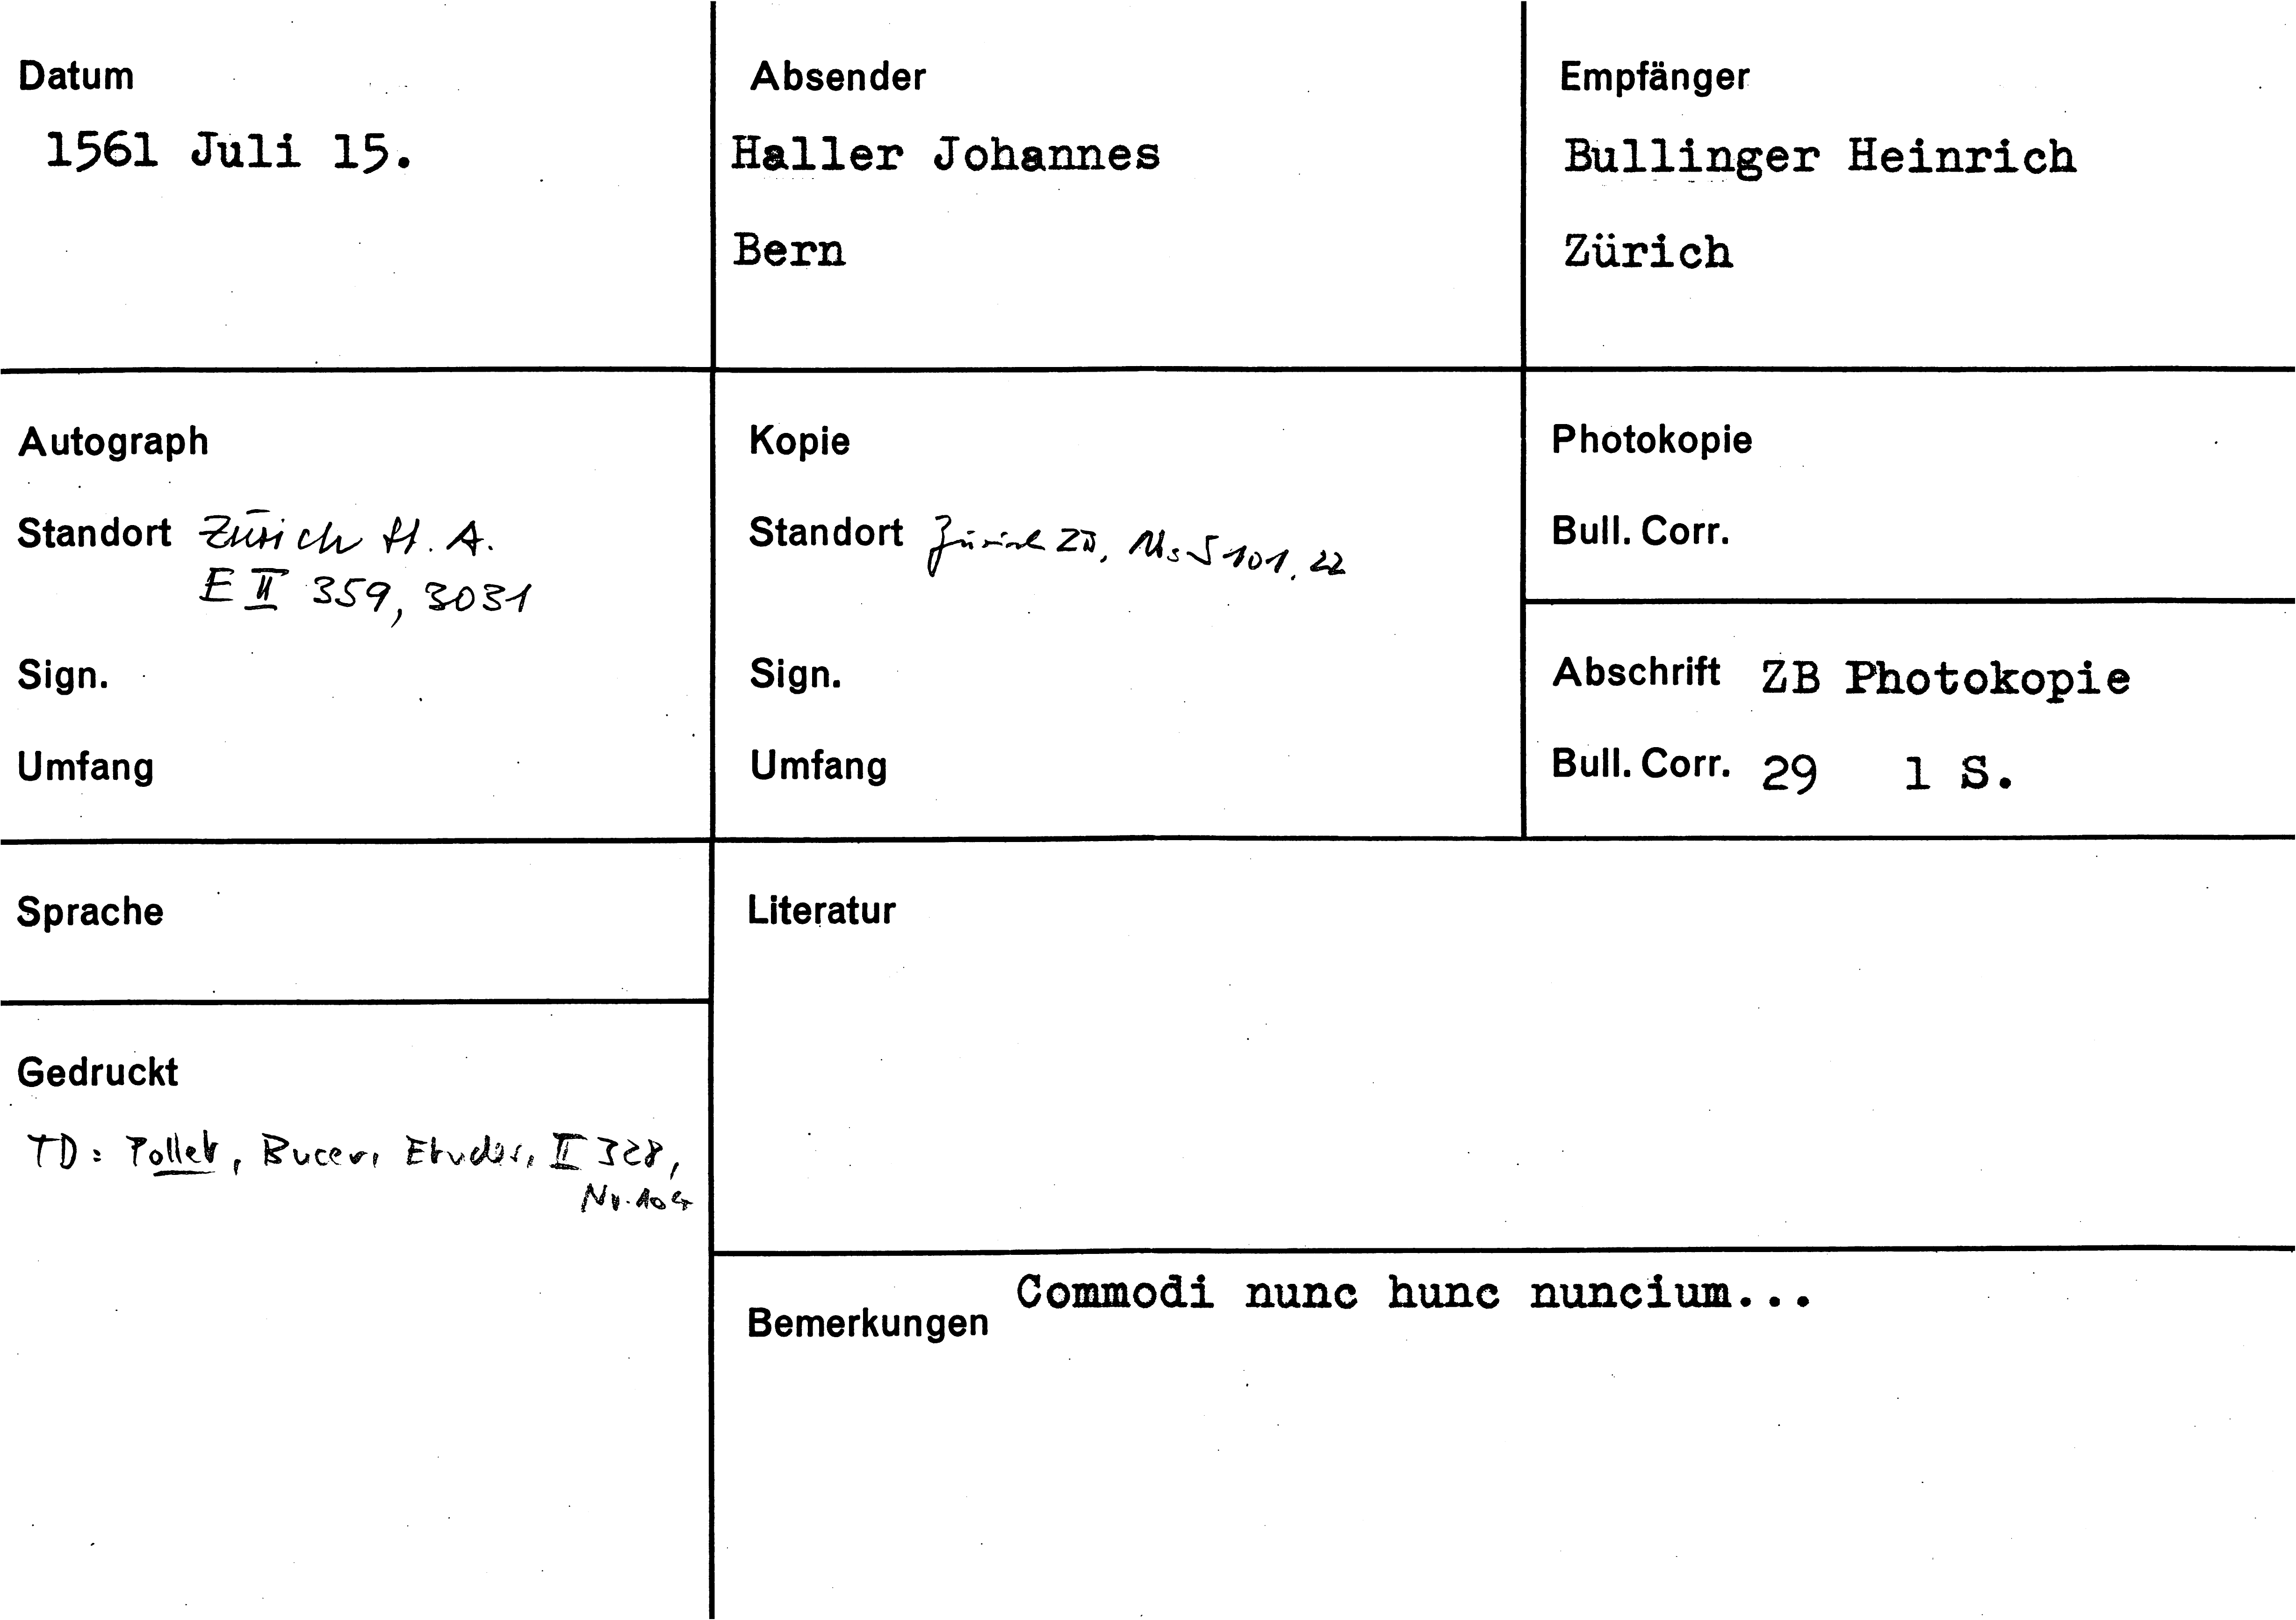 Datum
1561 Juli 15.
Absender
Haller Johannes
Bern
Empfänger
Bullinger Heinrich
Zürich
Autograph
Standort Zürich St. A.
E II 359, 3031
Sign.
Umfang
Kopie
Standort Zürich ZB, Ms S 101, 22
Sign.
Umfang
Photokopie
Bull. Corr.
Abschrift ZB Photokopie
Bull. Corr. 29 1 S.
Sprache
Literatur
Gedruckt
TD: Pollet, Bucer, Etudes, II 328,
Nr. 104
Bemerkungen Commodi nunc hunc nuncium...